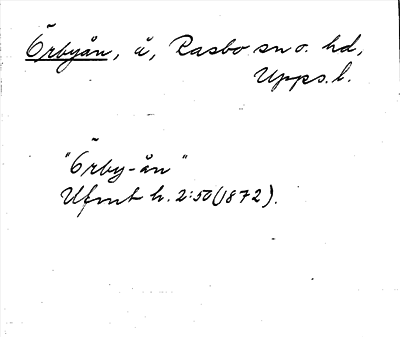 Örbyån, å, Rasbo sn o. hd,
Upps. l.
"Örby-ån"
Ufmt h. 2:50 (1872).